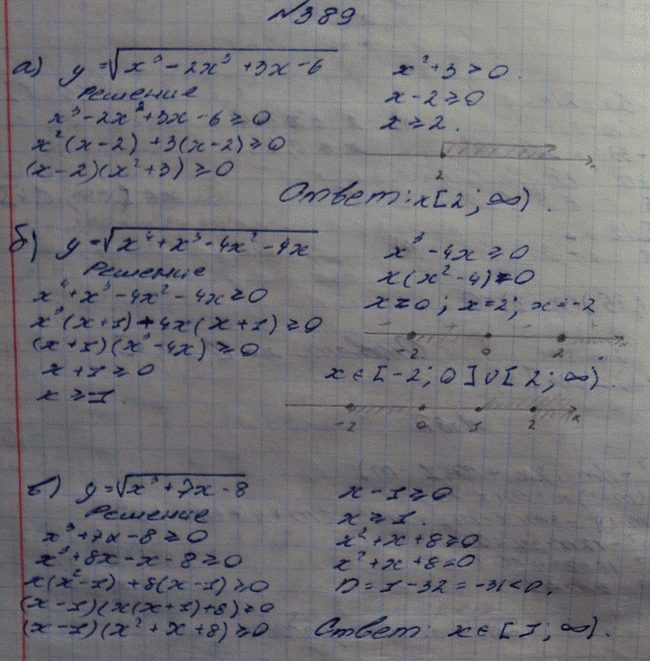 №389
а) y=√x³-2x³+3x-6
Решение
x³-2x²+3x-6≥0
x²(x-2)+3(x-2)≥0
(x-2)(x²+3)≥0
x²+3>0
x-2≥0
x≥2.
2 x
Ответ: x[2;∞).
б) y=√x⁴+x³-4x²-4x
Решение
x⁴+x³-4x²-4x≥0
x³(x+1)-4x(x+1)≥0
(x+1)(x³-4x)≥0
x+1≥0
x≥-1
x³-4x≥0
x(x²-4)=0
x=0; x=2; x=-2
-2 0 2 x
x∈[-2;0]∪[2;∞)
-2 0 1 2 x
в) y=√x³+7x-8
Решение
x³+7x-8≥0
x³+8x-x-8≥0
x(x²-1)+8(x-1)≥0
(x-1)(x(x+1)+8)≥0
(x-1)(x²+x+8)≥0
x-1≥0
x≥1.
x²+x+8≥0
x²+x+8=0
D=1-32=-31<0.
Ответ: x∈[1;∞).